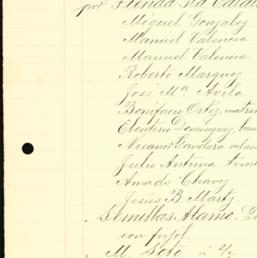 por
Miguel Gonzalez
Manuel Valencia
Manuel Valencia
Roberto Marquez
José Mª Avila
Bonifacio Ortiz,
Eleuterio Dominguez,
Nicanor Gandara
Julio Antuna
Amado Chavez
Jesús B. Martz
Semillas Alamo.
con frijol.
M. Soto á